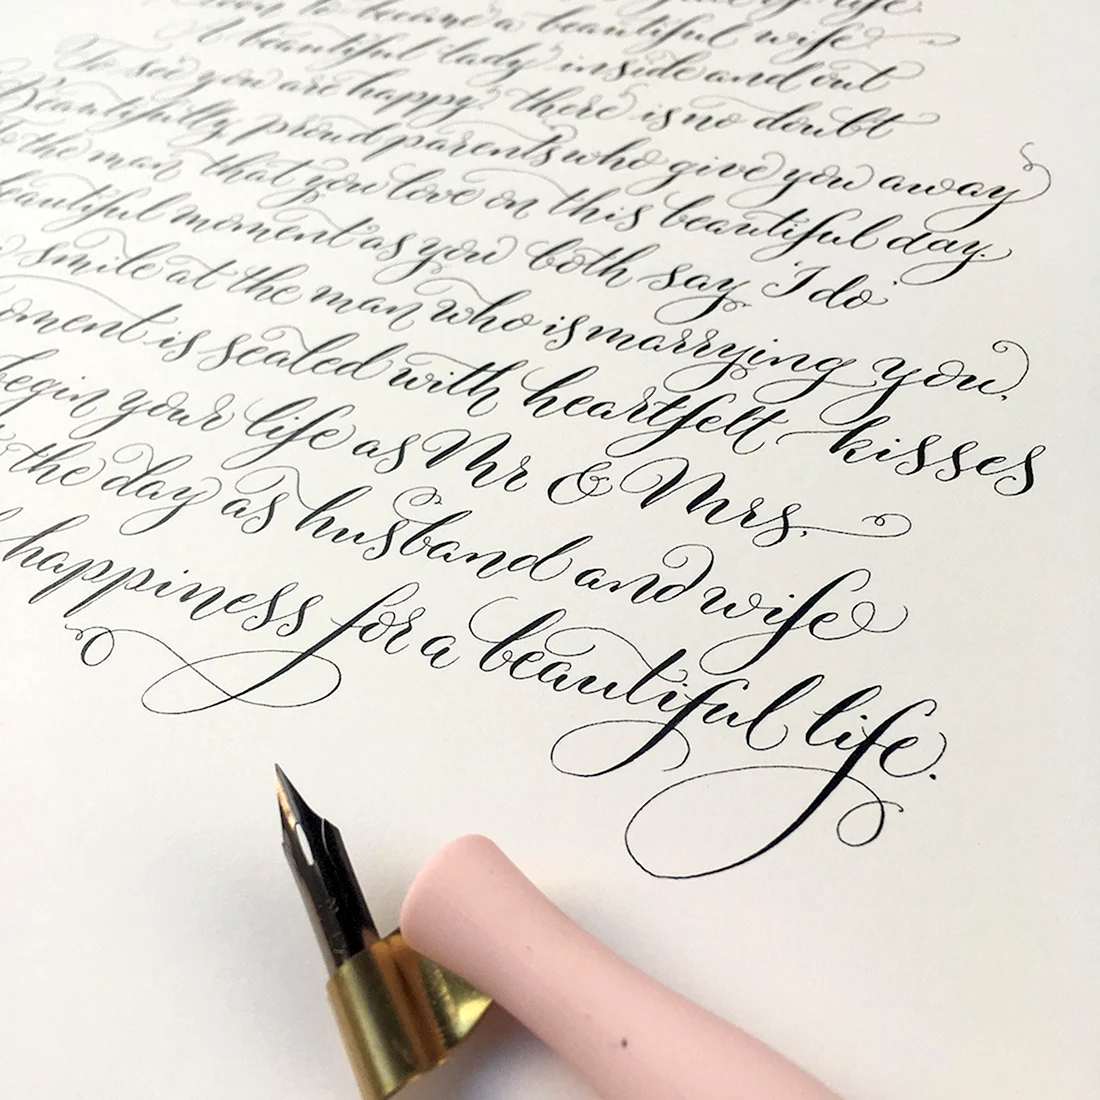 of life.
to become a beautiful wife
A beautiful lady inside and out
To see you are happy, there is no doubt
Beautifully proud parents who give you away
to the man that you love on this beautiful day.
beautiful moment as you both say 'I do'
smile at the man who is marrying you.
moment is sealed with heartfelt kisses
begin your life as Mr & Mrs.
the day as husband and wife
happiness for a beautiful life.